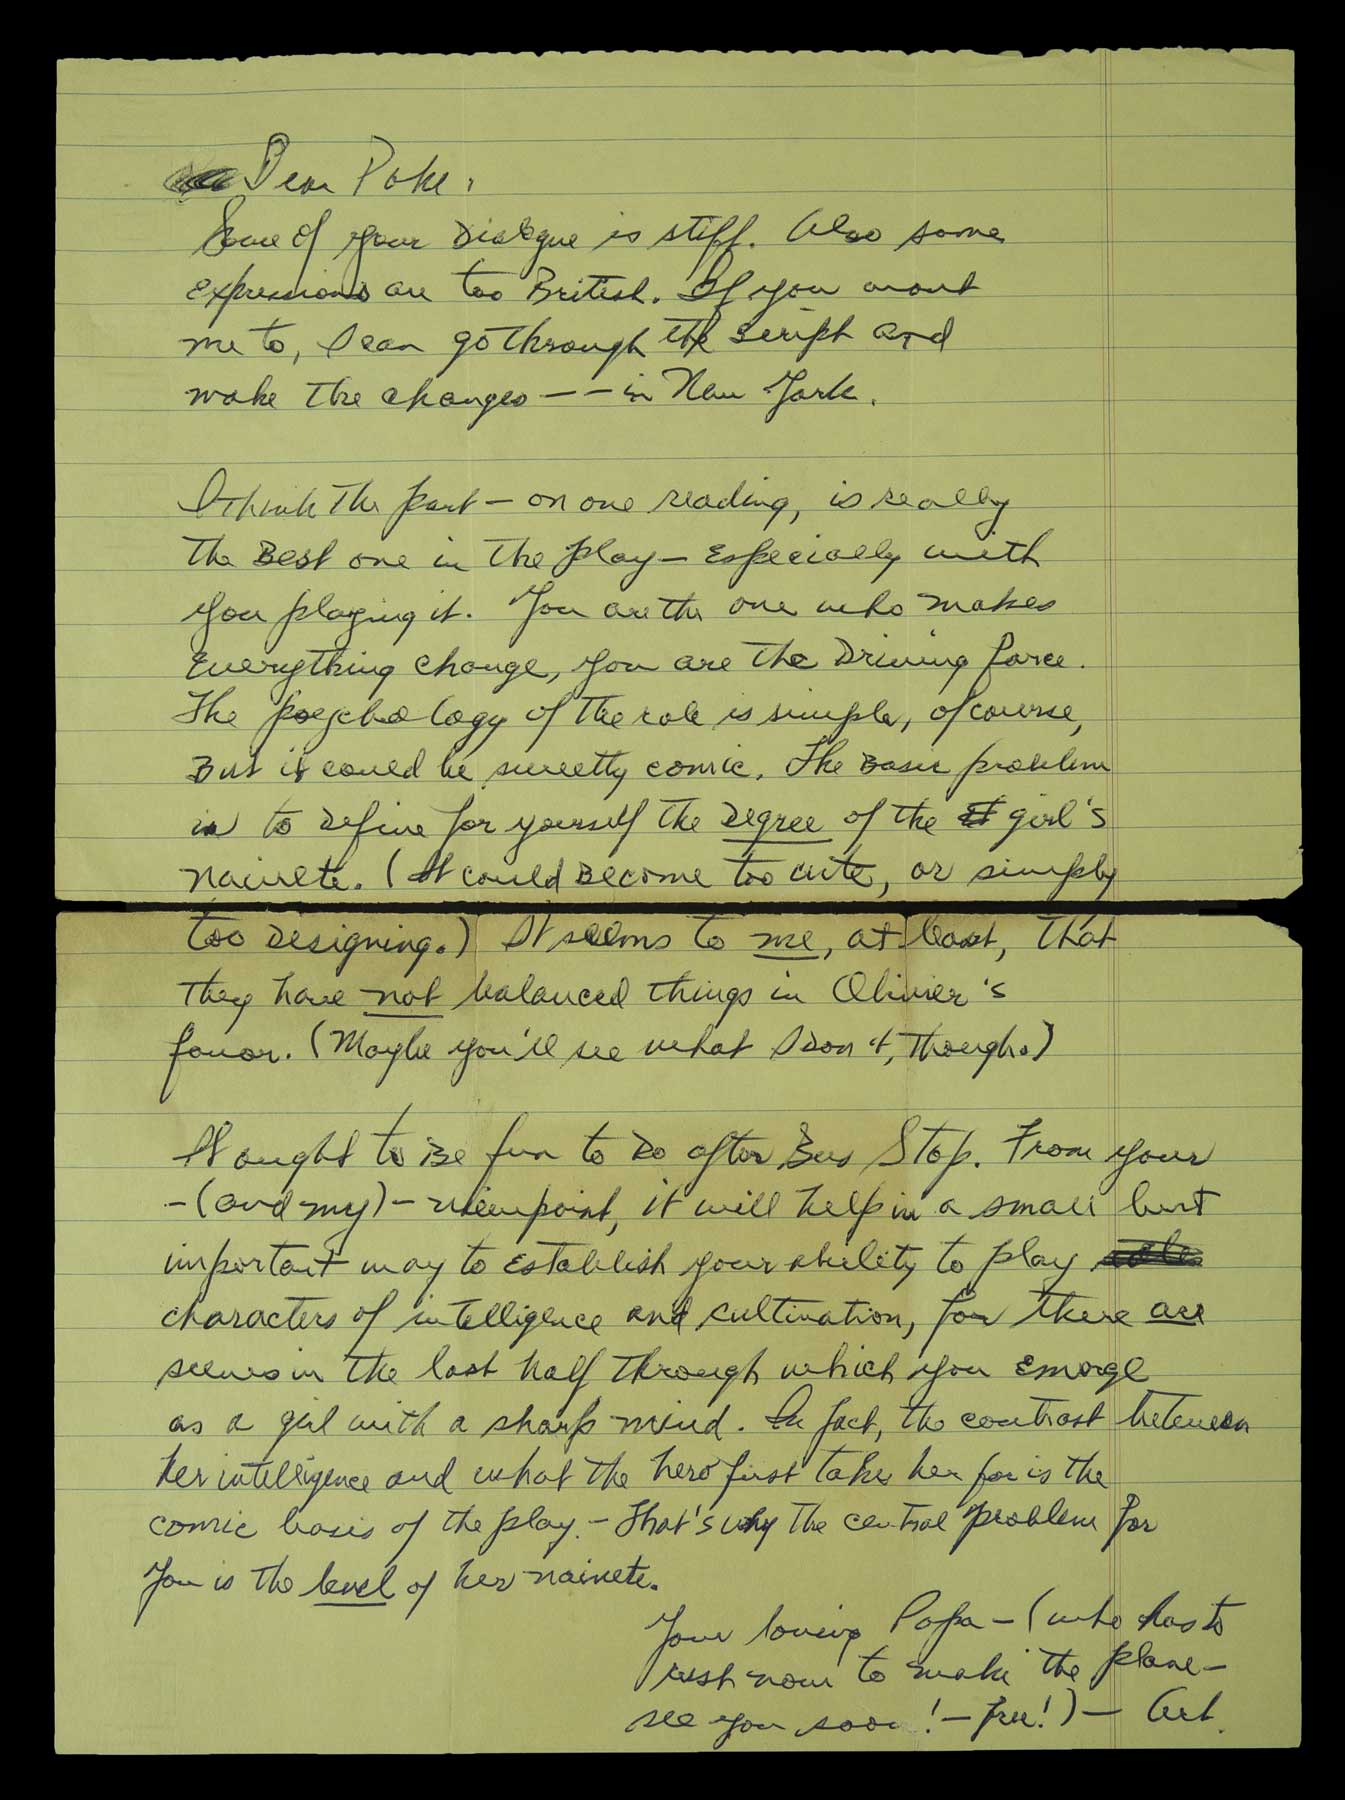 Dear Poke,
Some of your Dialogue is stiff. Also some
expressions are too British. If you want
me to, I can go through the script and
make the changes -- in New York.
I think the part - on one reading, is really
the Best one in the play - Especially with
you playing it. You are the one who makes
Everything change, you are the Driving force.
The psychology of the role is simple, of course,
But it could be sweetly comic. The Basic problem
is to Define for yourself the Degree of the girl's
naivete. (It could Become too cute, or simply
too Designing.) It seems to me, at least, that
they have not balanced things in Olivier's
favor. (Maybe you'll see what I Don't, though.)
It ought to Be fun to Do after Bus Stop. From your
-(and my)- viewpoint, it will help in a small but
important way to Establish your ability to play
characters of intelligence and cultivation, for there are
scenes in the last half through which you Emerge
as a girl with a sharp mind. In fact, the contrast between
her intelligence and what the hero first takes her for is the
comic basis of the play. - That's why the central problem for
You is the level of her naivete.
Your loving Papa - (who has to
rush now to make the plane -
see you soon! - free!) - Art.